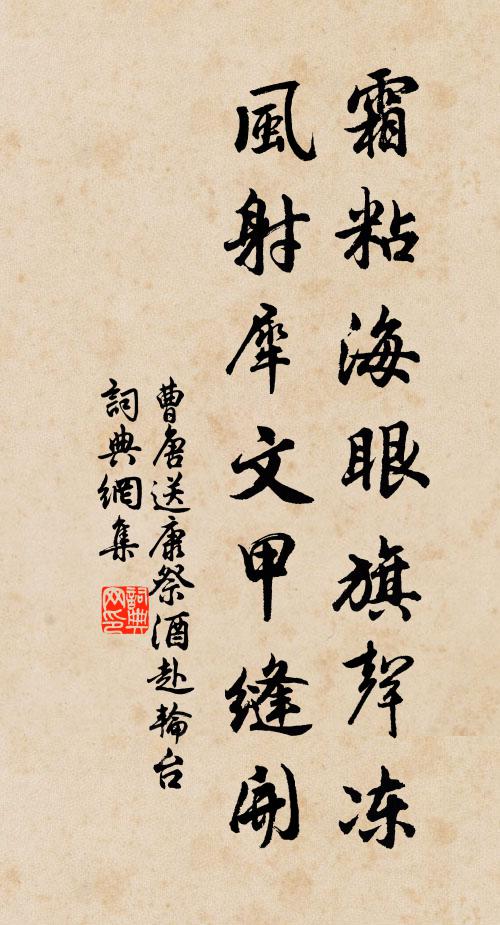 霜粘海眼旗聲冻
風射犀文甲縫開
曹唐送康祭酒赴輪台
詞典網集
詞典网印